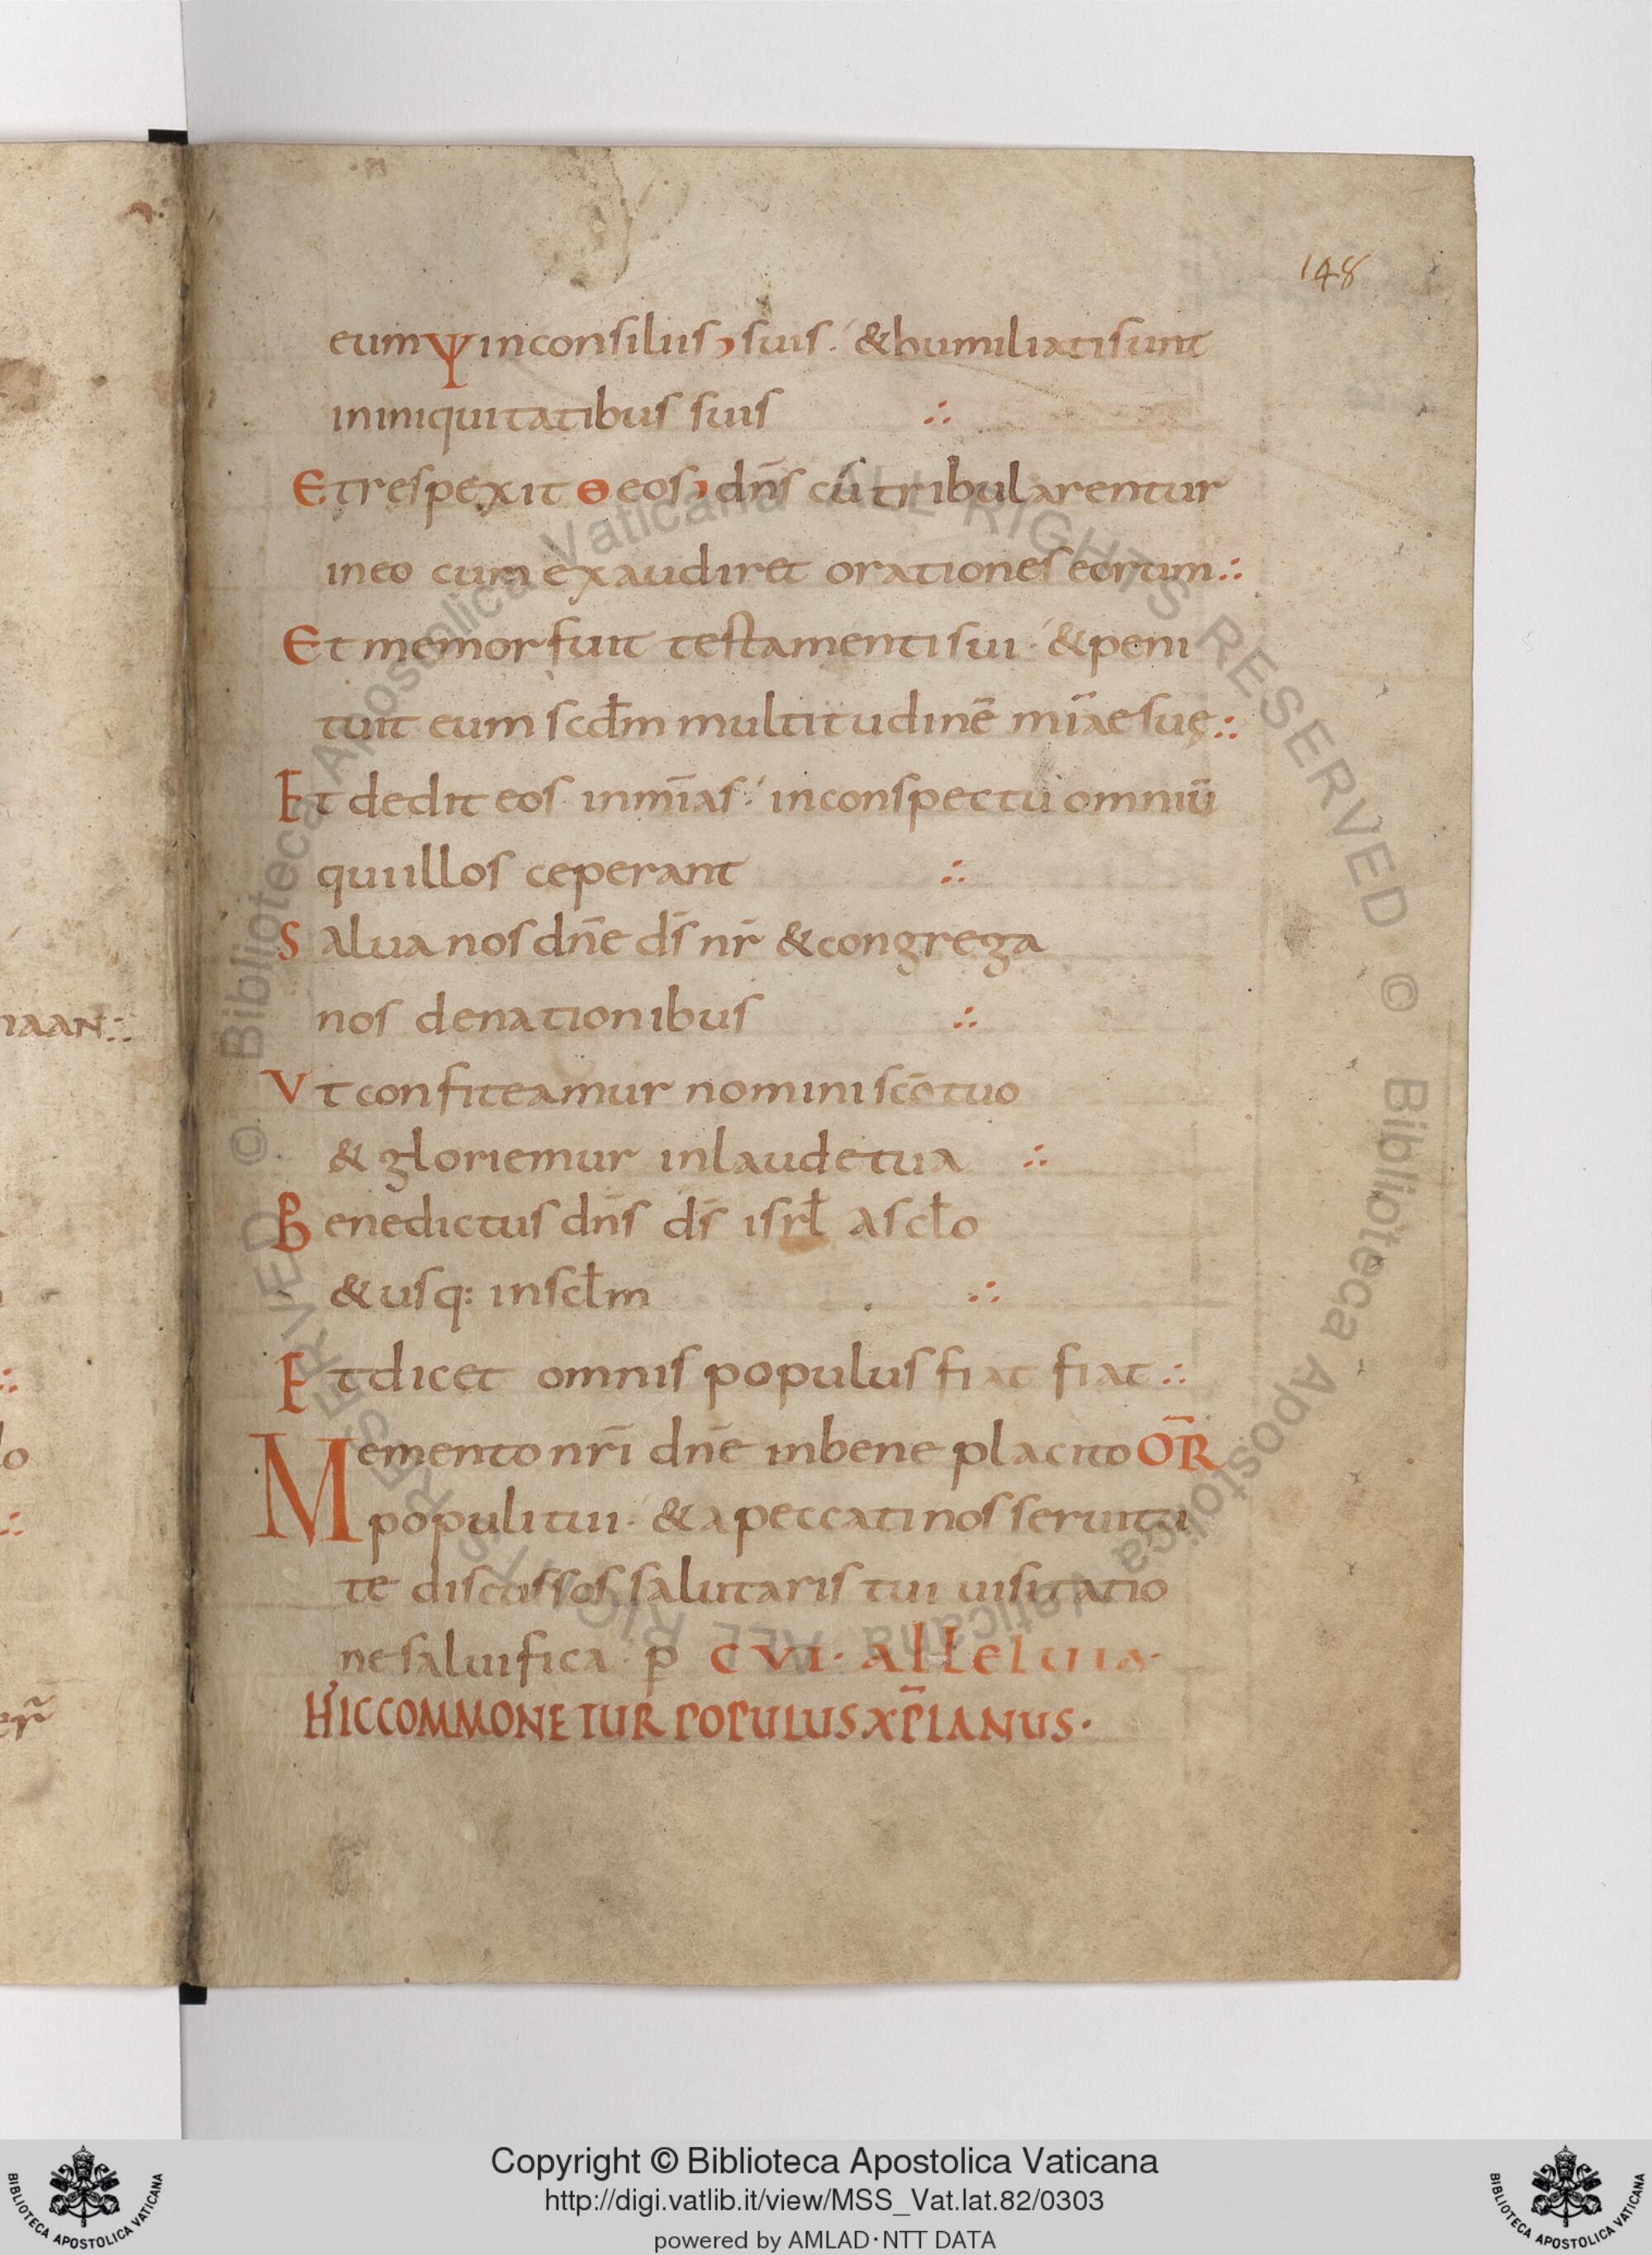 148
eum Ψ in consiliis, suis · & humiliati sunt
in iniquitatibus suis ∴
Et respexit Θ eos, dn̄s cū tribularentur
in eo cum exaudiret orationes eorum ∴
Et memor fuit testamenti sui · & peni
tuit eum scdm̄ multitudinē mīae suę ∴
Et dedit eos in mīas · in conspectu omniū
qui illos ceperant ∴
Salua nos dn̄e ds̄ nr̄ & congrega
nos de nationibus ∴
Vt confiteamur nomini scō tuo
& gloriemur in laude tua ∴
Benedictus dn̄s ds̄ isrł a scło
& usq: in scłm ∴
Et dicet omnis populus fiat fiat ∴
Memento nrī dn̄e in beneplacito OR̄
populi tui · & a peccati nos seruitu
te discussos salutaris tui uisitatio
ne saluifica · p CVI · alleluia ·
HIC COMMONETUR POPULUS XP̄IANUS ·
naan ∴
lo
er̃
© Biblioteca Apostolica Vaticana ALL RIGHTS RESERVED © Biblioteca Apostolica Vaticana ALL RIGHTS RESERVED
Copyright © Biblioteca Apostolica Vaticana
http://digi.vatlib.it/view/MSS_Vat.lat.82/0303
powered by AMLAD·NTT DATA
BIBLIOTECA APOSTOLICA VATICANA
BIBLIOTECA APOSTOLICA VATICANA